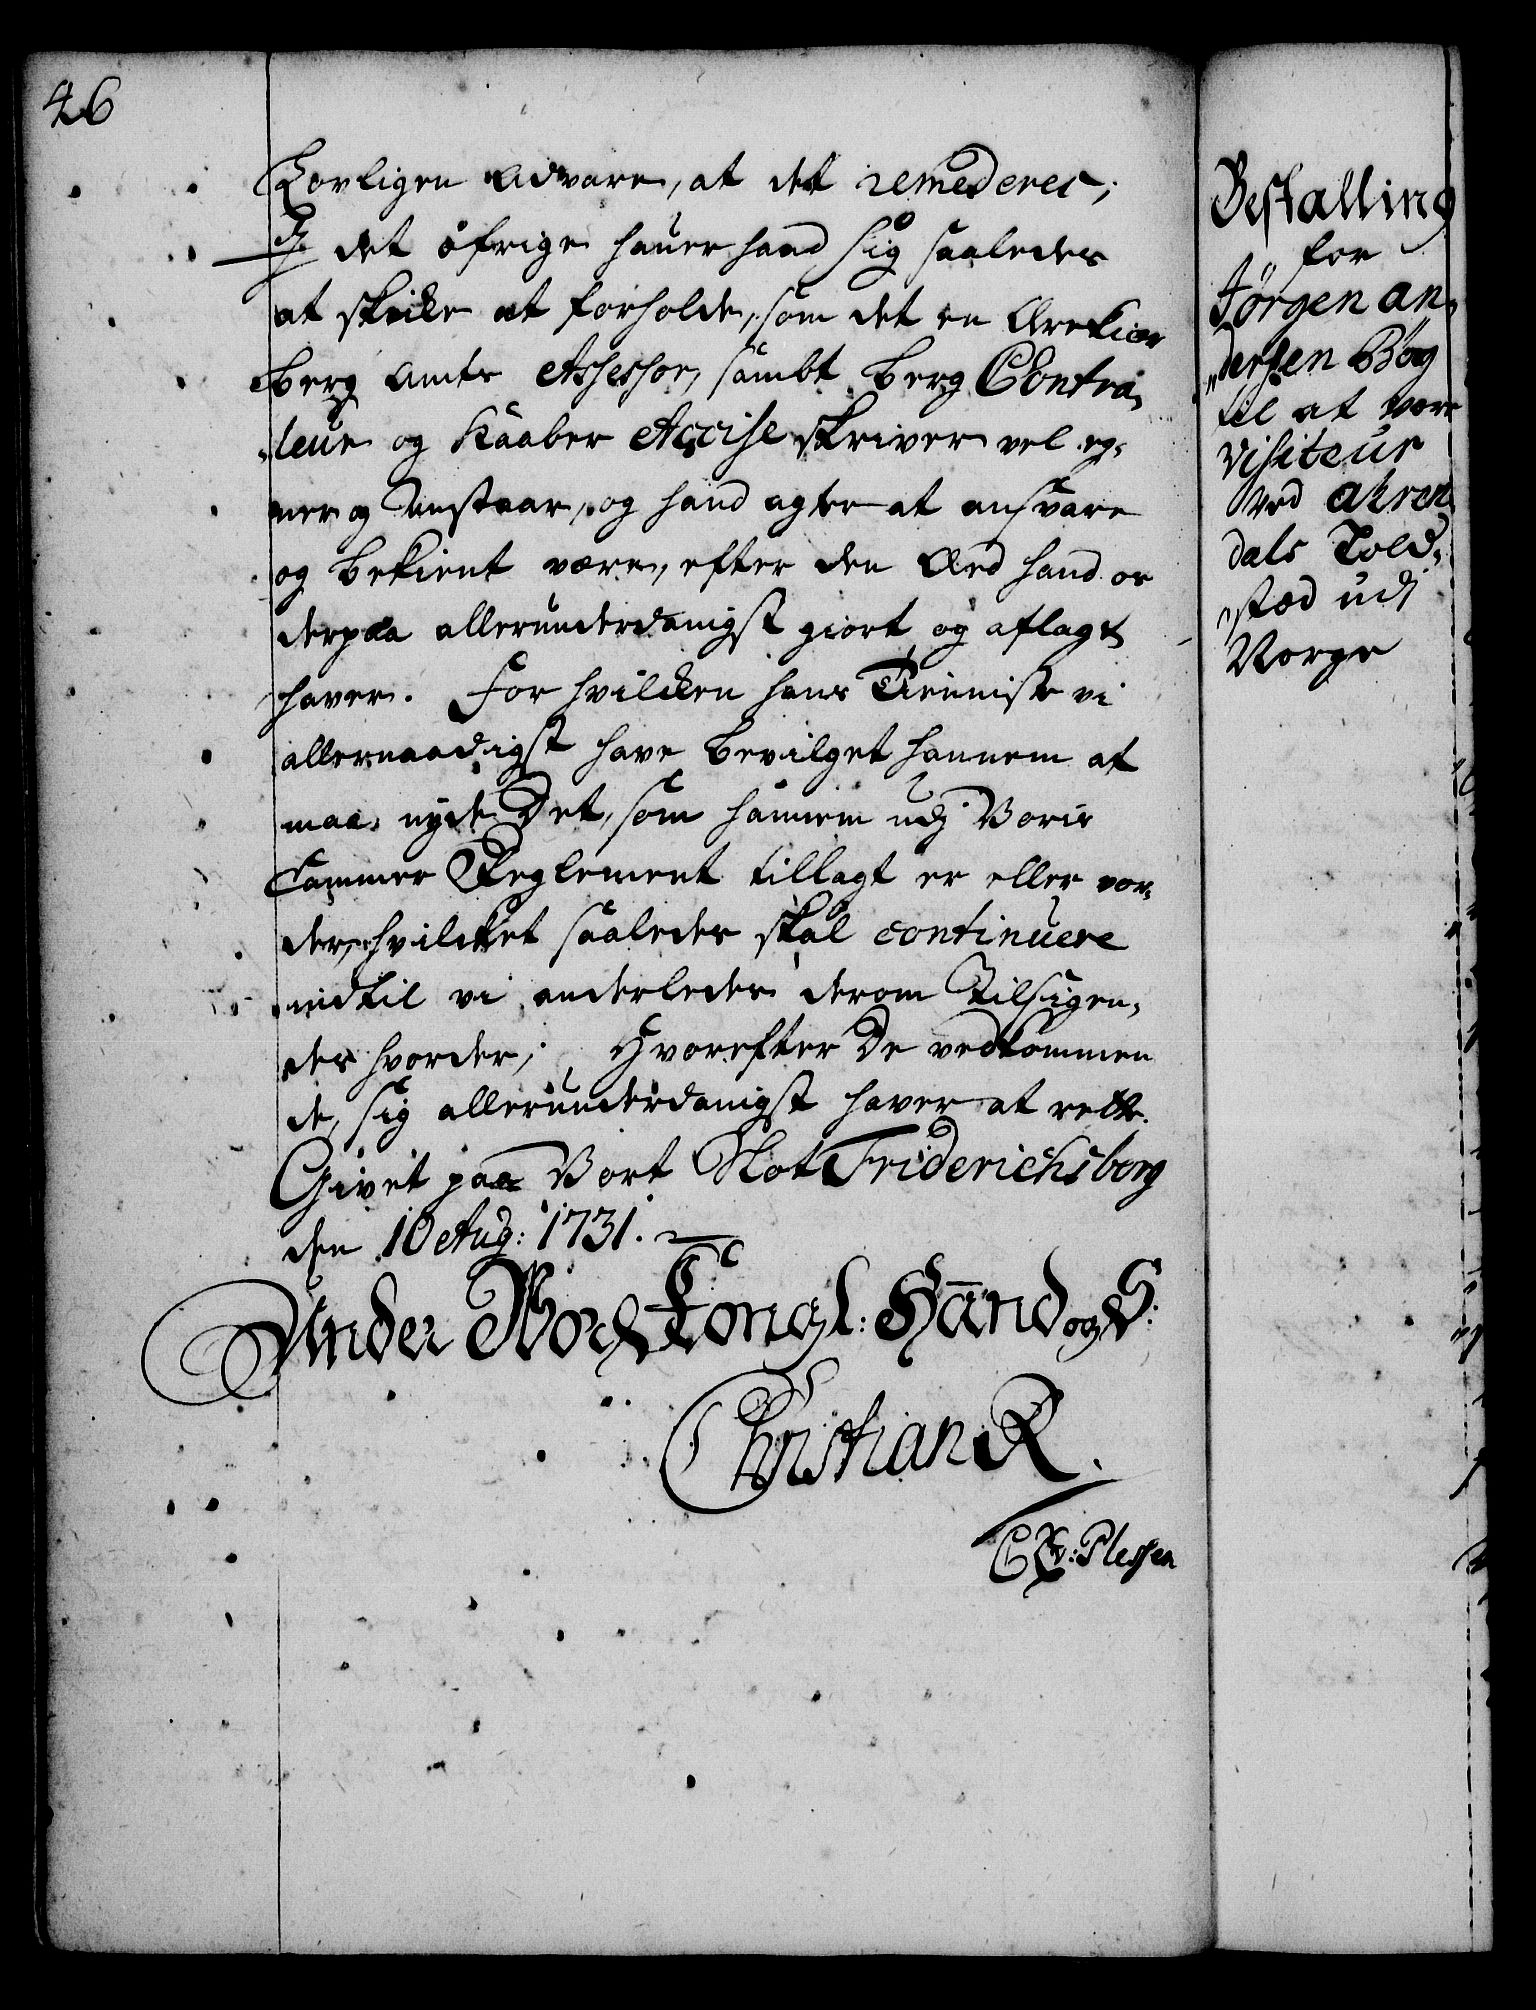 46
Lovligen advare, at det remederes;
J det øfrige haver hand sig saaledes
at skicke at forholde, som det en Ærekiær
Berg Amts Assessor, sambt Berg Contra-
leur og Kaaber Accise skriver vel eg-
ner og Anstaar, og hand agter at ansvare
og bekient være, efter den Æed hand os
derpaa allerunderdanigst giort og aflagt
haver. For hvilcken hans Tienniste vi
allernaadigst have bevilget hannem at
maa nyde Det, som hannem udj Voris
Cammer Reglement tillagt er eller vor-
der, hvilcket saaledes skal continuere
indtil vi anderledes derom Tilsigen-
des hvorder; Hvorefter De vedkommen
de, sig allerunderdanigst haver at rette.
Givet paa Vort Slot Friderichsborg
den 10 Aug: 1731.
Under Vor Kongl: Hand og S:
Christian R.
C A v: Plessen
Bestalling
for
Jørgen An-
dersen Bøg
til at være
Visiteur
ved Ahren
dals Told-
sted udj
Norge